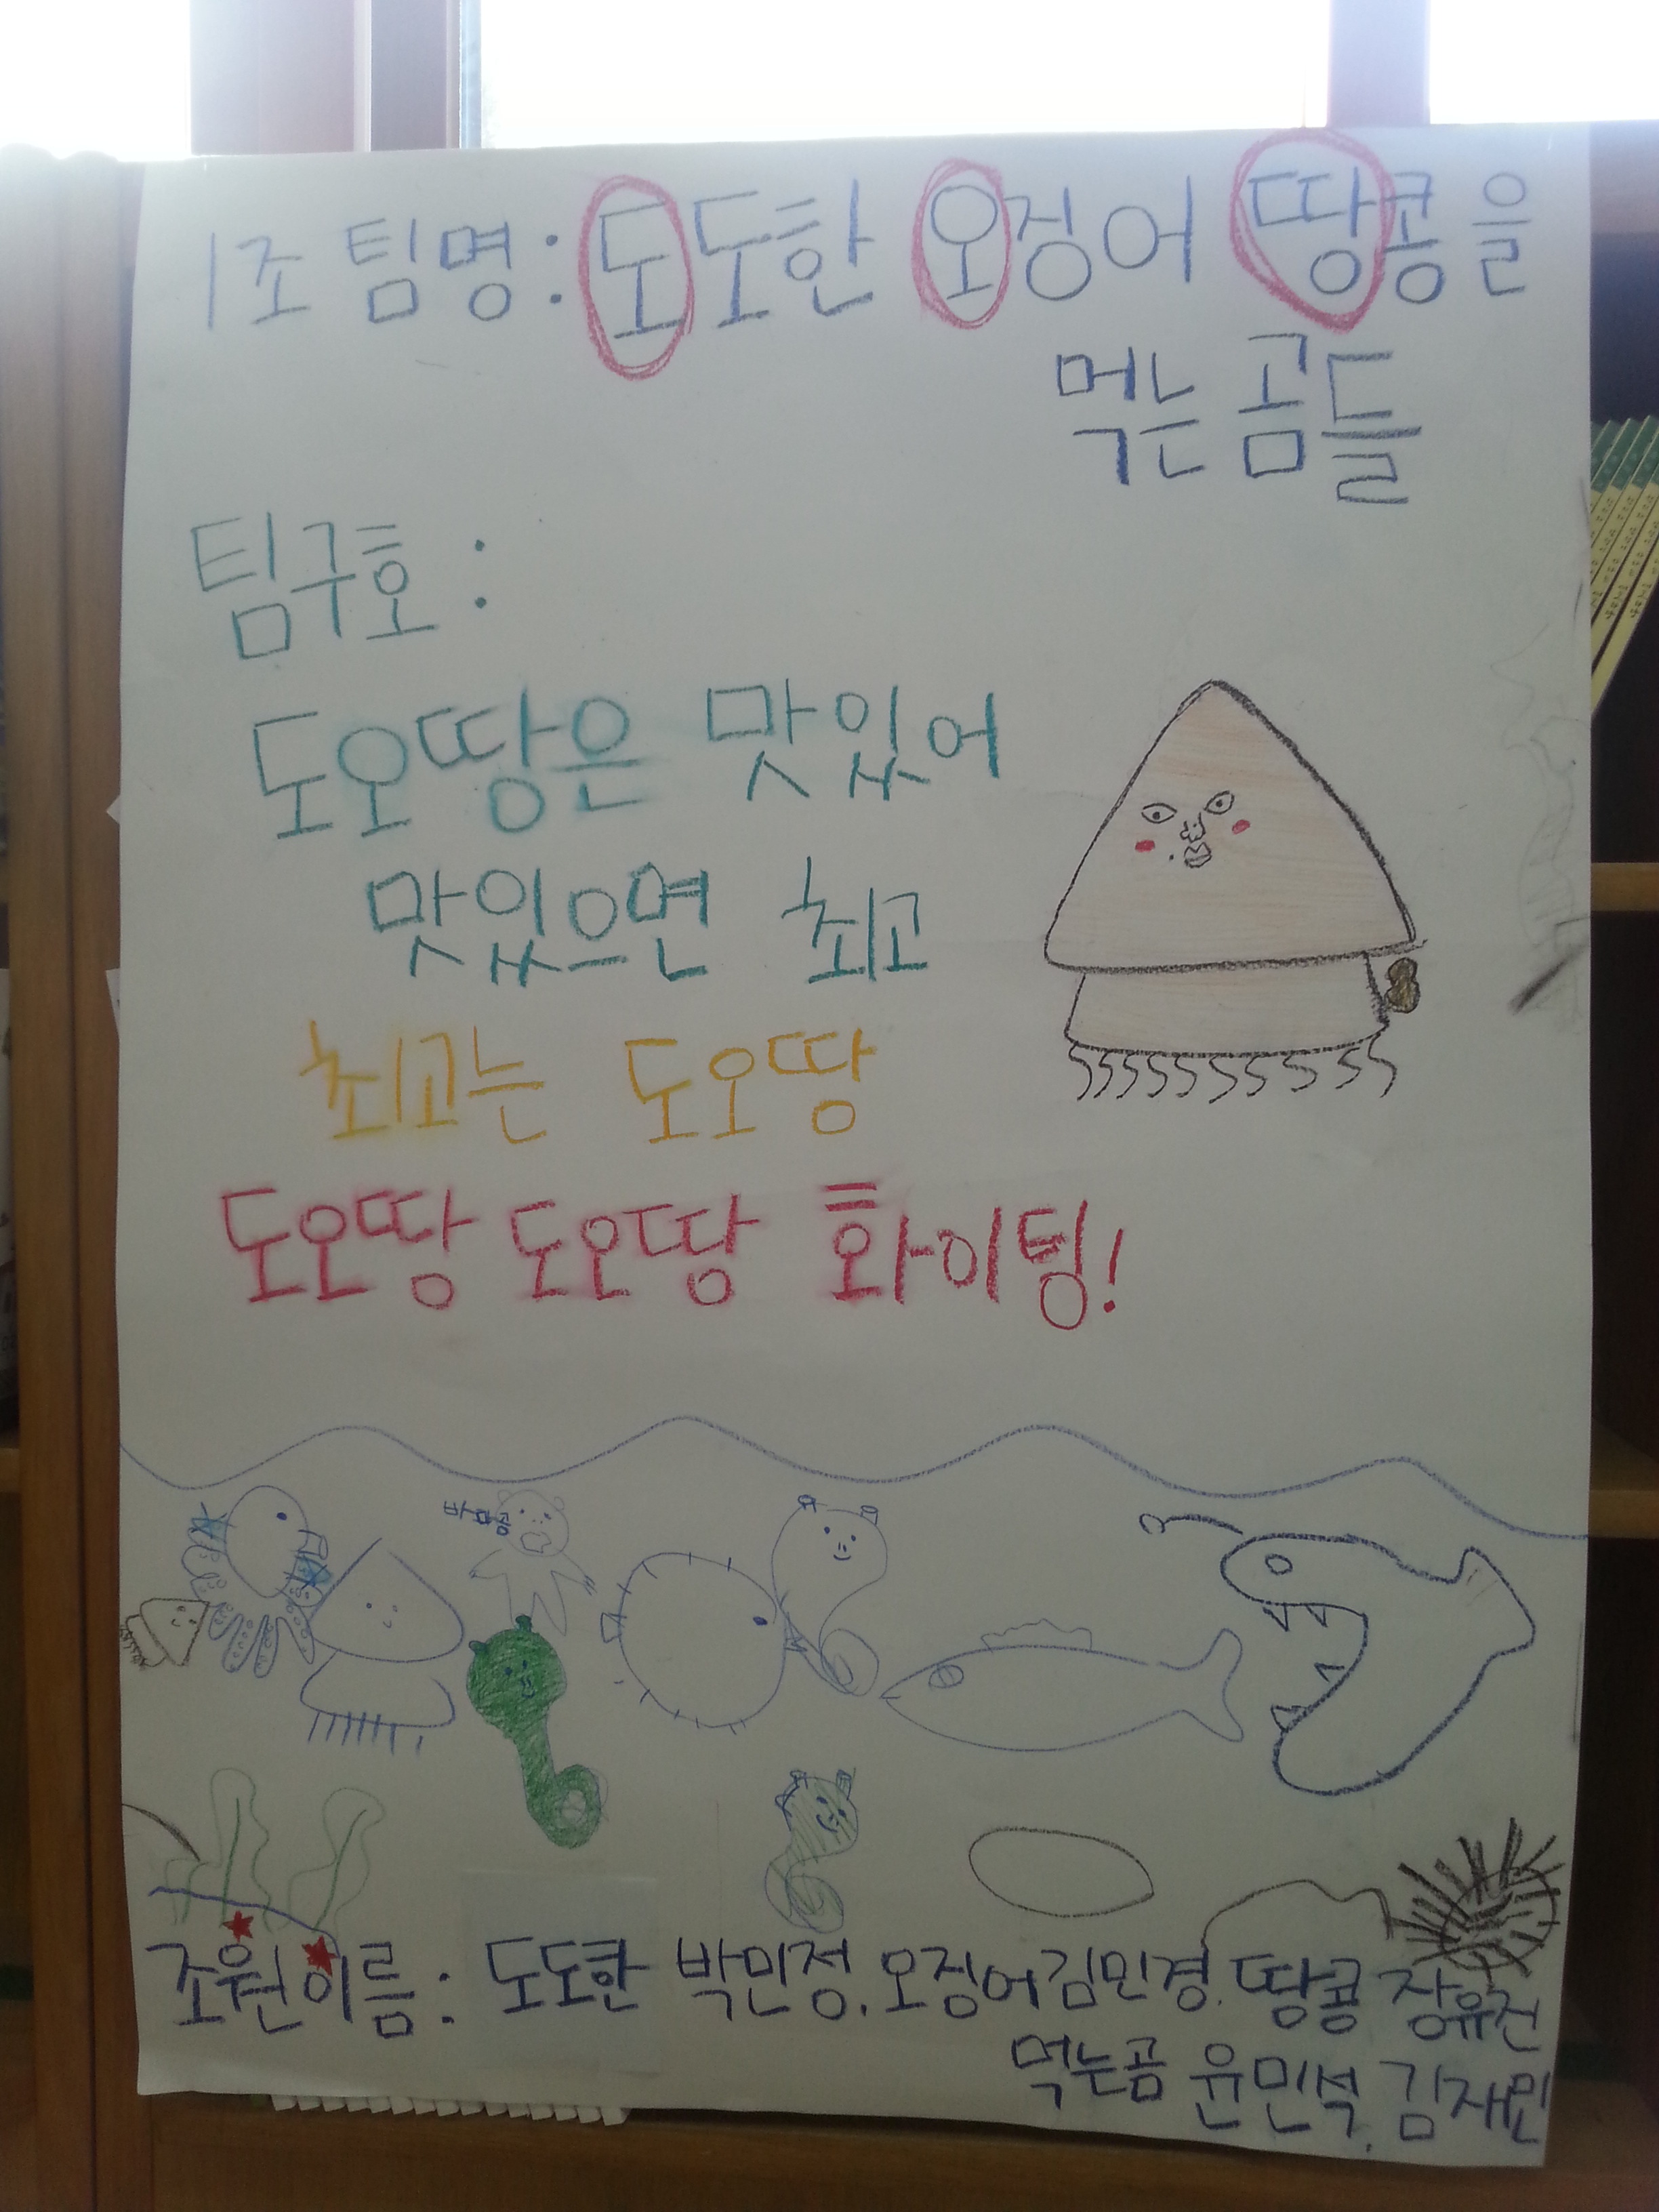 1조 팀명: 도도한 오징어 땅콩을
먹는 곰들
팀구호 :
도오땅은 맛있어
맛있으면 최고
최고는 도오땅
도오땅 도오땅 화이팅!
조원이름: 도도한 박민정. 오징어 김민경. 땅콩 장유진
먹는곰 윤민석, 김재민